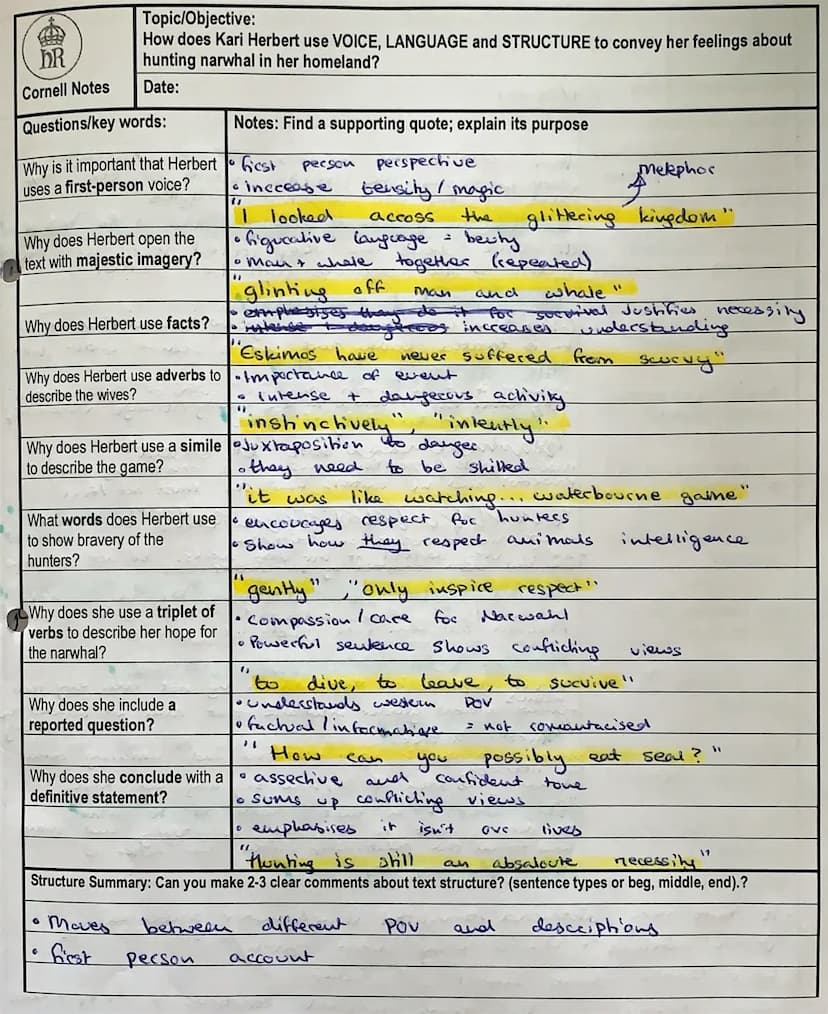 hR
Cornell Notes
Topic/Objective:
How does Kari Herbert use VOICE, LANGUAGE and STRUCTURE to convey her feelings about
hunting narwhal in her homeland?
Date:
Questions/key words:
Notes: Find a supporting quote; explain its purpose
Why is it important that Herbert
uses a first-person voice?
• first person perspective
• increase tensity / magic
Metephor
"I looked across the glittering kingdom"
Why does Herbert open the
text with majestic imagery?
• figurative language = beuty
• man + whale together (repeated)
"glinting off man and whale"
Why does Herbert use facts?
• emphasises they do it for survival justifies necessity
• intense + dangerous increases understanding
"Eskimos have never suffered from scurvy"
Why does Herbert use adverbs to
describe the wives?
• Importance of event
• intense + dangerous activity
"instinctively", "intently".
Why does Herbert use a simile
to describe the game?
• Juxtaposition to danger
• they need to be skilled
"it was like watching... waterbourne game"
What words does Herbert use
to show bravery of the
hunters?
• encourages respect for hunters
• Show how they respect animals intelligence
"gently", "only inspire respect"
Why does she use a triplet of
verbs to describe her hope for
the narwhal?
• compassion / care for Narwahl
• Powerful sentence shows conflicting views
"to dive, to leave, to survive"
Why does she include a
reported question?
• understands western POV
• factual / informative = not romantacised
"How can you possibly eat seal?"
Why does she conclude with a
definitive statement?
• assertive and confident tone
• sums up conflicting views
• emphasises it isn't our lives
"Hunting is still an absaloute necessity"
Structure Summary: Can you make 2-3 clear comments about text structure? (sentence types or beg, middle, end).?
• Moves between different POV and descriptions
• first person account